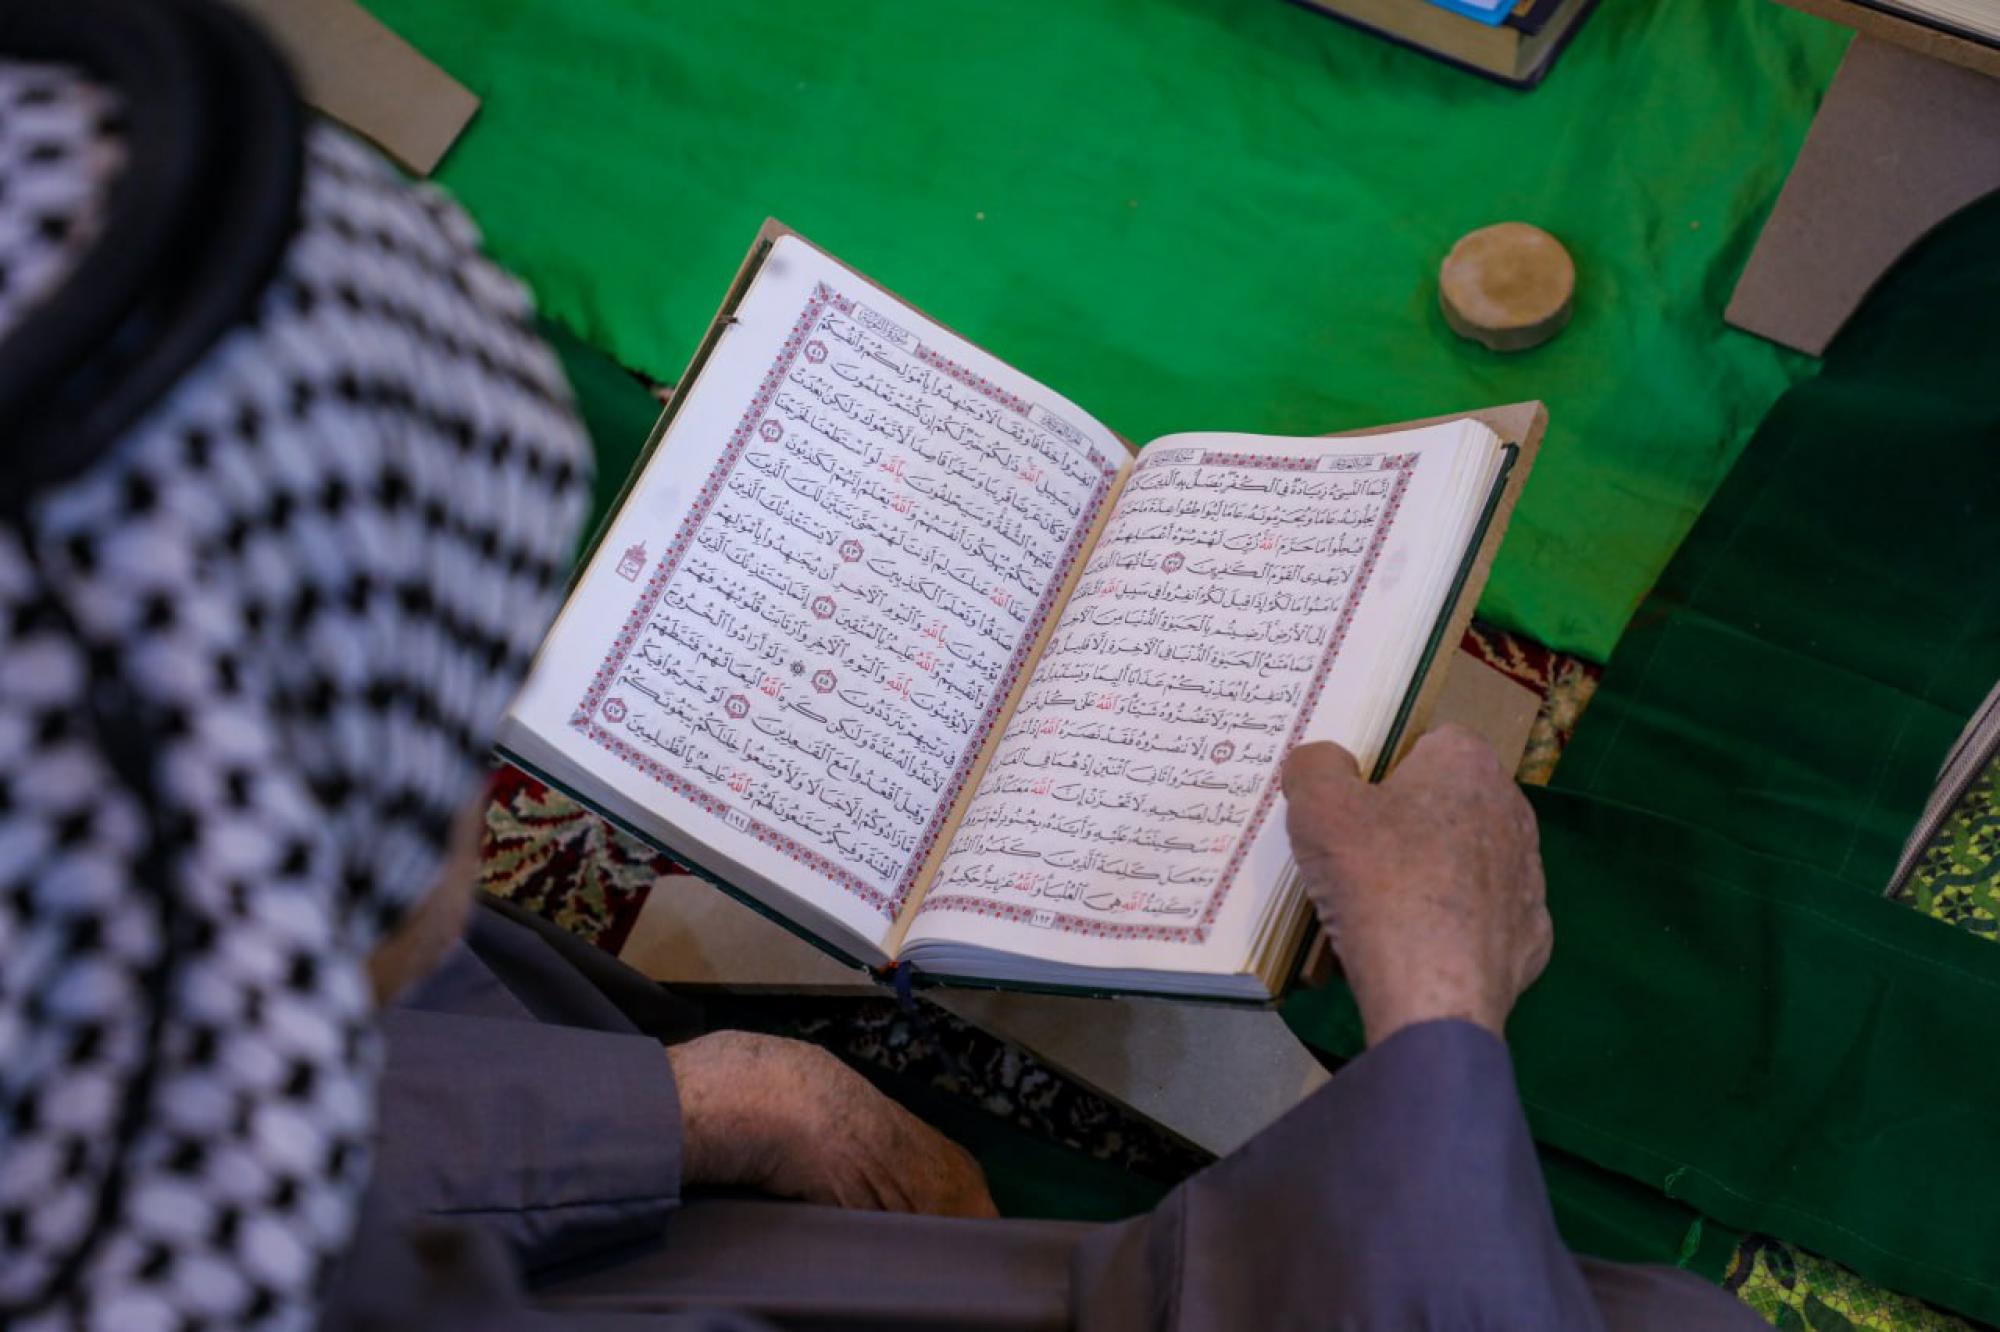 سُورَةُ التَّوْبَةِ
إِنَّمَا ٱلنَّسِىٓءُ زِيَادَةٌ فِى ٱلْكُفْرِ يُضَلُّ بِهِ ٱلَّذِينَ
يُحِلُّونَهُۥ عَامًا وَيُحَرِّمُونَهُۥ عَامًا لِّيُوَاطِـُٔوا۟ عِدَّةَ مَا
فَيُحِلُّوا۟ مَا حَرَّمَ ٱللَّهُ زُيِّنَ لَهُمْ سُوٓءُ أَعْمَـٰلِهِمْ
لَا يَهْدِى ٱلْقَوْمَ ٱلْكَـٰفِرِينَ ٣٧ يَـٰٓأَيُّهَا ٱلَّذِينَ
ءَامَنُوا۟ مَا لَكُمْ إِذَا قِيلَ لَكُمُ ٱنفِرُوا۟ فِى سَبِيلِ ٱللَّهِ
إِلَى ٱلْأَرْضِ أَرَضِيتُم بِٱلْحَيَوٰةِ ٱلدُّنْيَا مِنَ
فَمَا مَتَـٰعُ ٱلْحَيَوٰةِ ٱلدُّنْيَا فِى ٱلْـَٔاخِرَةِ إِلَّا قَلِيلٌ
إِلَّا تَنفِرُوا۟ يُعَذِّبْكُمْ عَذَابًا أَلِيمًا وَيَسْتَبْدِلْ
غَيْرَكُمْ وَلَا تَضُرُّوهُ شَيْـًٔا وَٱللَّهُ عَلَىٰ كُلِّ
قَدِيرٌ ٣٩ إِلَّا تَنصُرُوهُ فَقَدْ نَصَرَهُ ٱللَّهُ إِذْ
ٱلَّذِينَ كَفَرُوا۟ ثَانِىَ ٱثْنَيْنِ إِذْ هُمَا فِى
يَقُولُ لِصَـٰحِبِهِۦ لَا تَحْزَنْ إِنَّ ٱللَّهَ مَعَنَا
ٱللَّهُ سَكِينَتَهُۥ عَلَيْهِ وَأَيَّدَهُۥ بِجُنُودٍ لَّمْ
وَجَعَلَ كَلِمَةَ ٱلَّذِينَ كَفَرُوا۟
وَكَلِمَةُ ٱللَّهِ هِىَ ٱلْعُلْيَا وَٱللَّهُ عَزِيزٌ حَكِيمٌ
١٩٣
سُورَةُ التَّوْبَةِ
ٱنفِرُوا۟ خِفَافًا وَثِقَالًا وَجَـٰهِدُوا۟ بِأَمْوَٰلِكُمْ وَأَنفُسِكُمْ
فِى سَبِيلِ ٱللَّهِ ذَٰلِكُمْ خَيْرٌ لَّكُمْ إِن كُنتُمْ تَعْلَمُونَ ٤١
لَوْ كَانَ عَرَضًا قَرِيبًا وَسَفَرًا قَاصِدًا لَّٱتَّبَعُوكَ وَلَـٰكِنۢ بَعُدَتْ
عَلَيْهِمُ ٱلشُّقَّةُ وَسَيَحْلِفُونَ بِٱللَّهِ لَوِ ٱسْتَطَعْنَا لَخَرَجْنَا
مَعَكُمْ يُهْلِكُونَ أَنفُسَهُمْ وَٱللَّهُ يَعْلَمُ إِنَّهُمْ لَكَـٰذِبُونَ ٤٢
عَفَا ٱللَّهُ عَنكَ لِمَ أَذِنتَ لَهُمْ حَتَّىٰ يَتَبَيَّنَ لَكَ ٱلَّذِينَ
صَدَقُوا۟ وَتَعْلَمَ ٱلْكَـٰذِبِينَ ٤٣ لَا يَسْتَـْٔذِنُكَ ٱلَّذِينَ
يُؤْمِنُونَ بِٱللَّهِ وَٱلْيَوْمِ ٱلْـَٔاخِرِ أَن يُجَـٰهِدُوا۟ بِأَمْوَٰلِهِمْ
وَأَنفُسِهِمْ وَٱللَّهُ عَلِيمٌۢ بِٱلْمُتَّقِينَ ٤٤ إِنَّمَا يَسْتَـْٔذِنُكَ ٱلَّذِينَ
لَا يُؤْمِنُونَ بِٱللَّهِ وَٱلْيَوْمِ ٱلْـَٔاخِرِ وَٱرْتَابَتْ قُلُوبُهُمْ فَهُمْ
فِى رَيْبِهِمْ يَتَرَدَّدُونَ ٤٥ ۞ وَلَوْ أَرَادُوا۟ ٱلْخُرُوجَ
لَأَعَدُّوا۟ لَهُۥ عُدَّةً وَلَـٰكِن كَرِهَ ٱللَّهُ ٱنۢبِعَاثَهُمْ فَثَبَّطَهُمْ
وَقِيلَ ٱقْعُدُوا۟ مَعَ ٱلْقَـٰعِدِينَ ٤٦ لَوْ خَرَجُوا۟ فِيكُم
مَّا زَادُوكُمْ إِلَّا خَبَالًا وَلَأَوْضَعُوا۟ خِلَـٰلَكُمْ يَبْغُونَكُمُ
ٱلْفِتْنَةَ وَفِيكُمْ سَمَّـٰعُونَ لَهُمْ وَٱللَّهُ عَلِيمٌۢ بِٱلظَّـٰلِمِينَ ٤٧
١٩٤